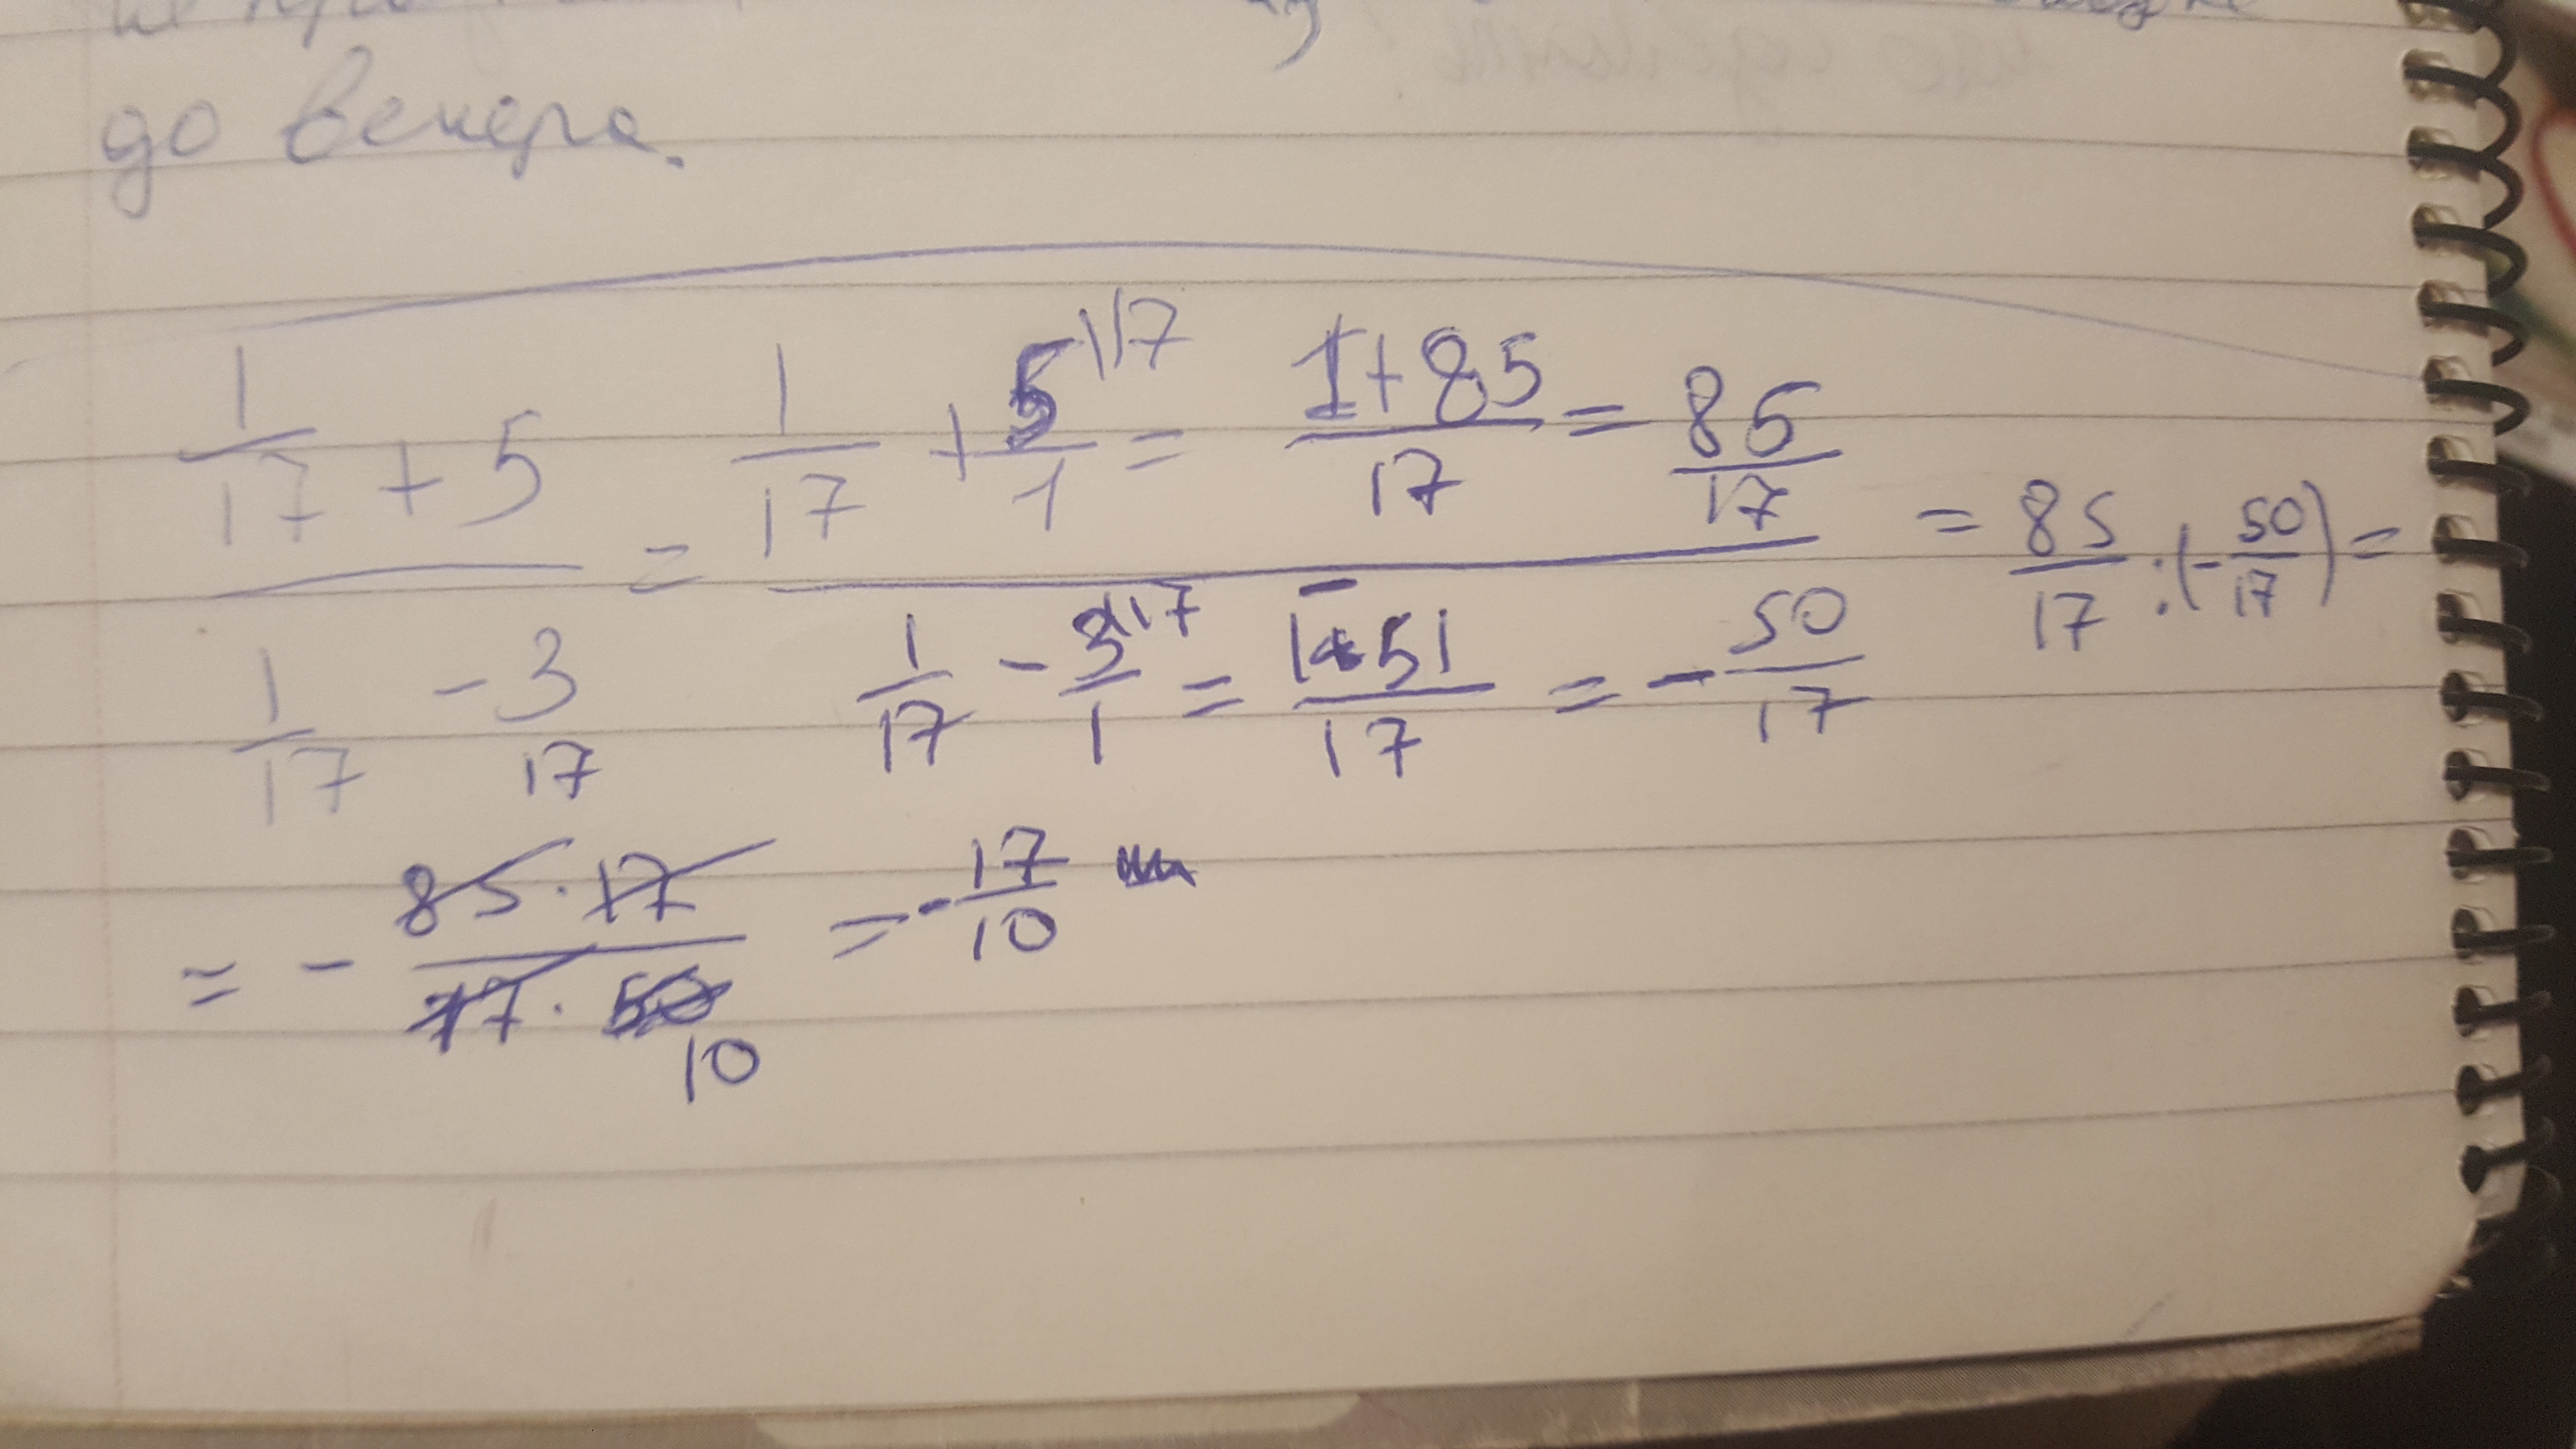 до вечера.
1/17 + 5 / 1/17 - 3 17 = 1/17 + 5\17/1 = 1+85/17 = 86/17 / 1/17 - 3\17/1 = 1-51/17 = - 50/17 = 85/17 : (- 50/17) =
= - 85·17/17·50 10 = - 17/10